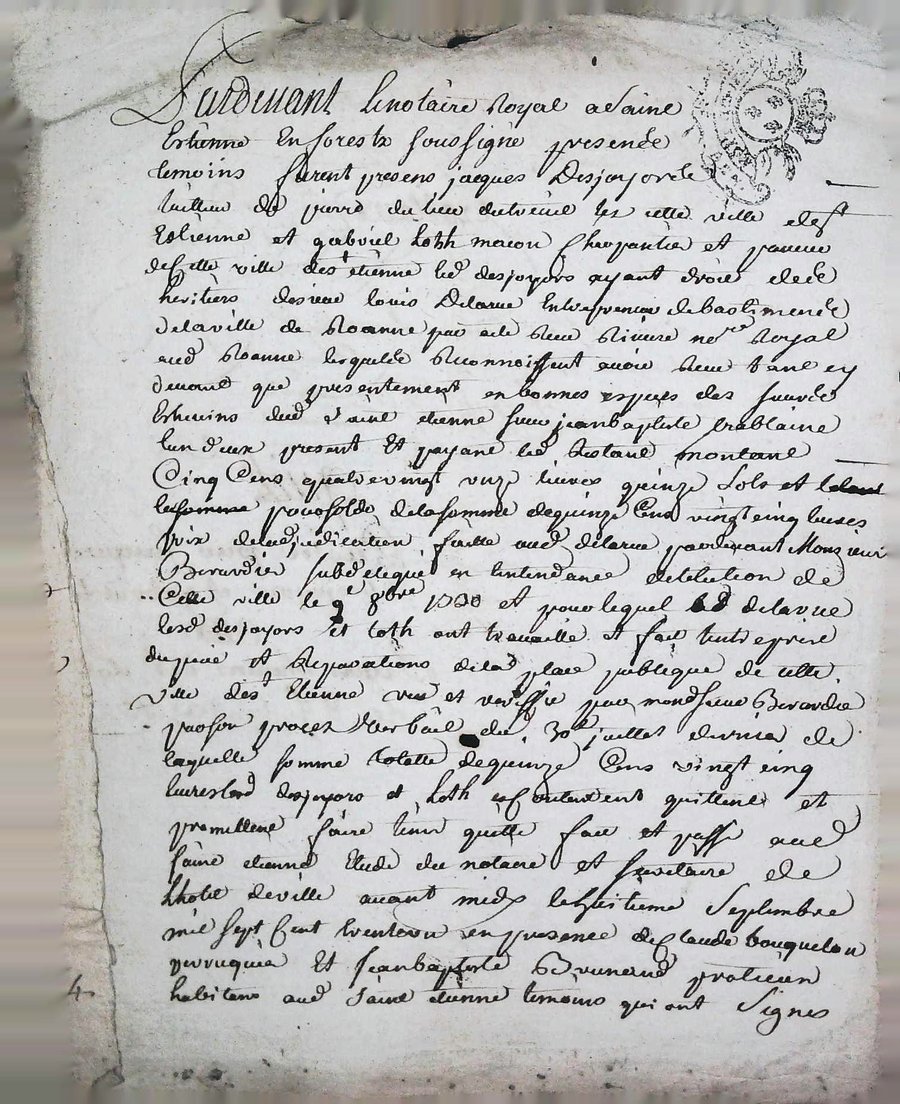 Pardevant le notaire Royal a Saint
Estienne En forests soussigné presence
temoins furent presens jacques Desjoyors
tailleur de pierre du lieu de cette ville de st
Estienne et gabriel Loth macon Charpantier et
de cette ville de st etienne led desjoyors ayant droit de
heritiers de sieur louis Delarue Entrepreneur de bastiments
de la ville de Roanne par acte Receu Riviere nore Royal
aud Roanne lesquels Reconnoissent avoir Receu tant cy
devant que presentement en bonnes especes des sieurs
Echevins dud Saint etienne sieur jean baptiste trablaine
lun deux present Et payant led Restant montant
Cinq Cens quatrevingt onze livres quinze Sols et
la somme pour solde de la somme de quinze Cens vingt cinq livres
prix de ladjudication faitte aud delarue pardevant Monsieur
Berardier subdelegué en lintendance de lelection de
Cette ville le 9e 8bre 1730 et pour lequel sr delarue
lesd desjoyors et Loth ont travaillé et fait lentreprise
du pavé et Reparations de la place publique de cette
ville de st Etienne veu et veriffié par mondsieur Berardier
par son procez Verbail du 30e juillet dernier de
laquelle somme totalle de quinze Cens vingt cinq
livres lesd desjoyors et Loth se contentent quittent et
promettent faire tenir quitte fait et passé aud
saint etienne Etude du notaire et secretaire de
Lhotel de ville avant midy le huitieme Septembre
mil sept Cent trente un en presence de Claude bouquelon
perruquier Et jean baptiste Brunerud praticien
habitans aud Saint etienne temoins qui ont Signés
4